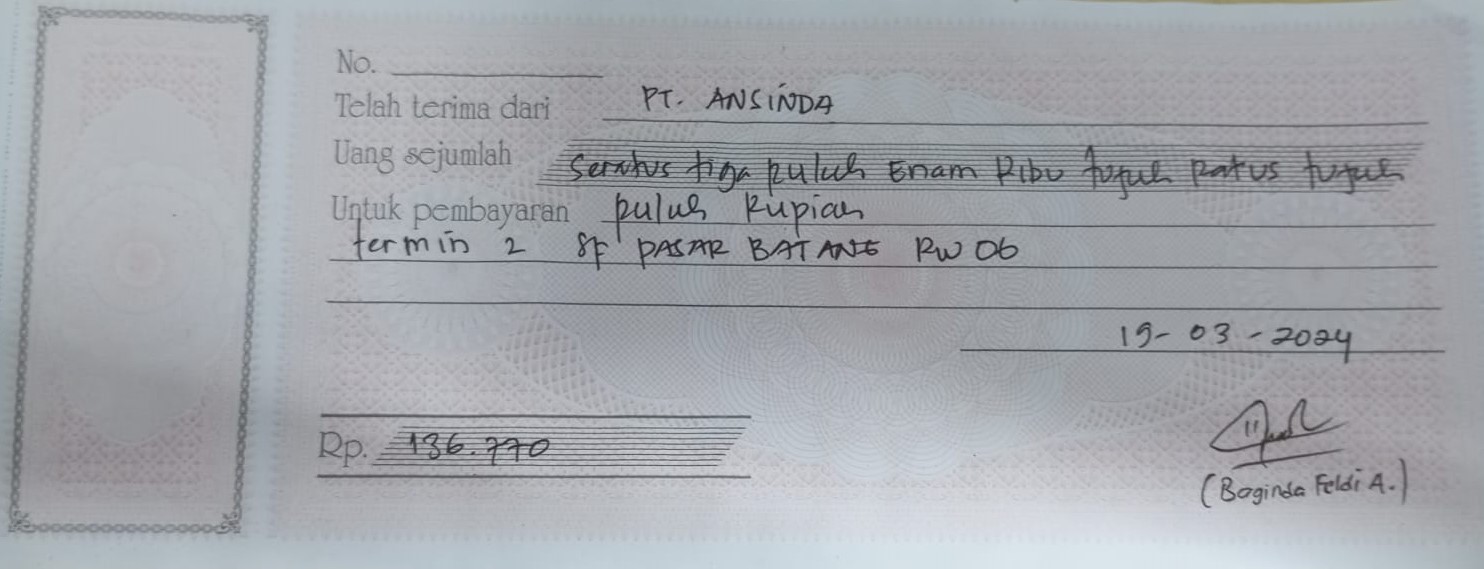 No.
Telah terima dari PT. ANSINDA
Uang sejumlah Seratus tiga puluh Enam Ribu tujuh Ratus tujuh
Untuk pembayaran puluh Rupiah
termin 2 SF PASAR BATANG RW 06
19-03-2024
Rp. 136.770
(Baginda Feldi A.)